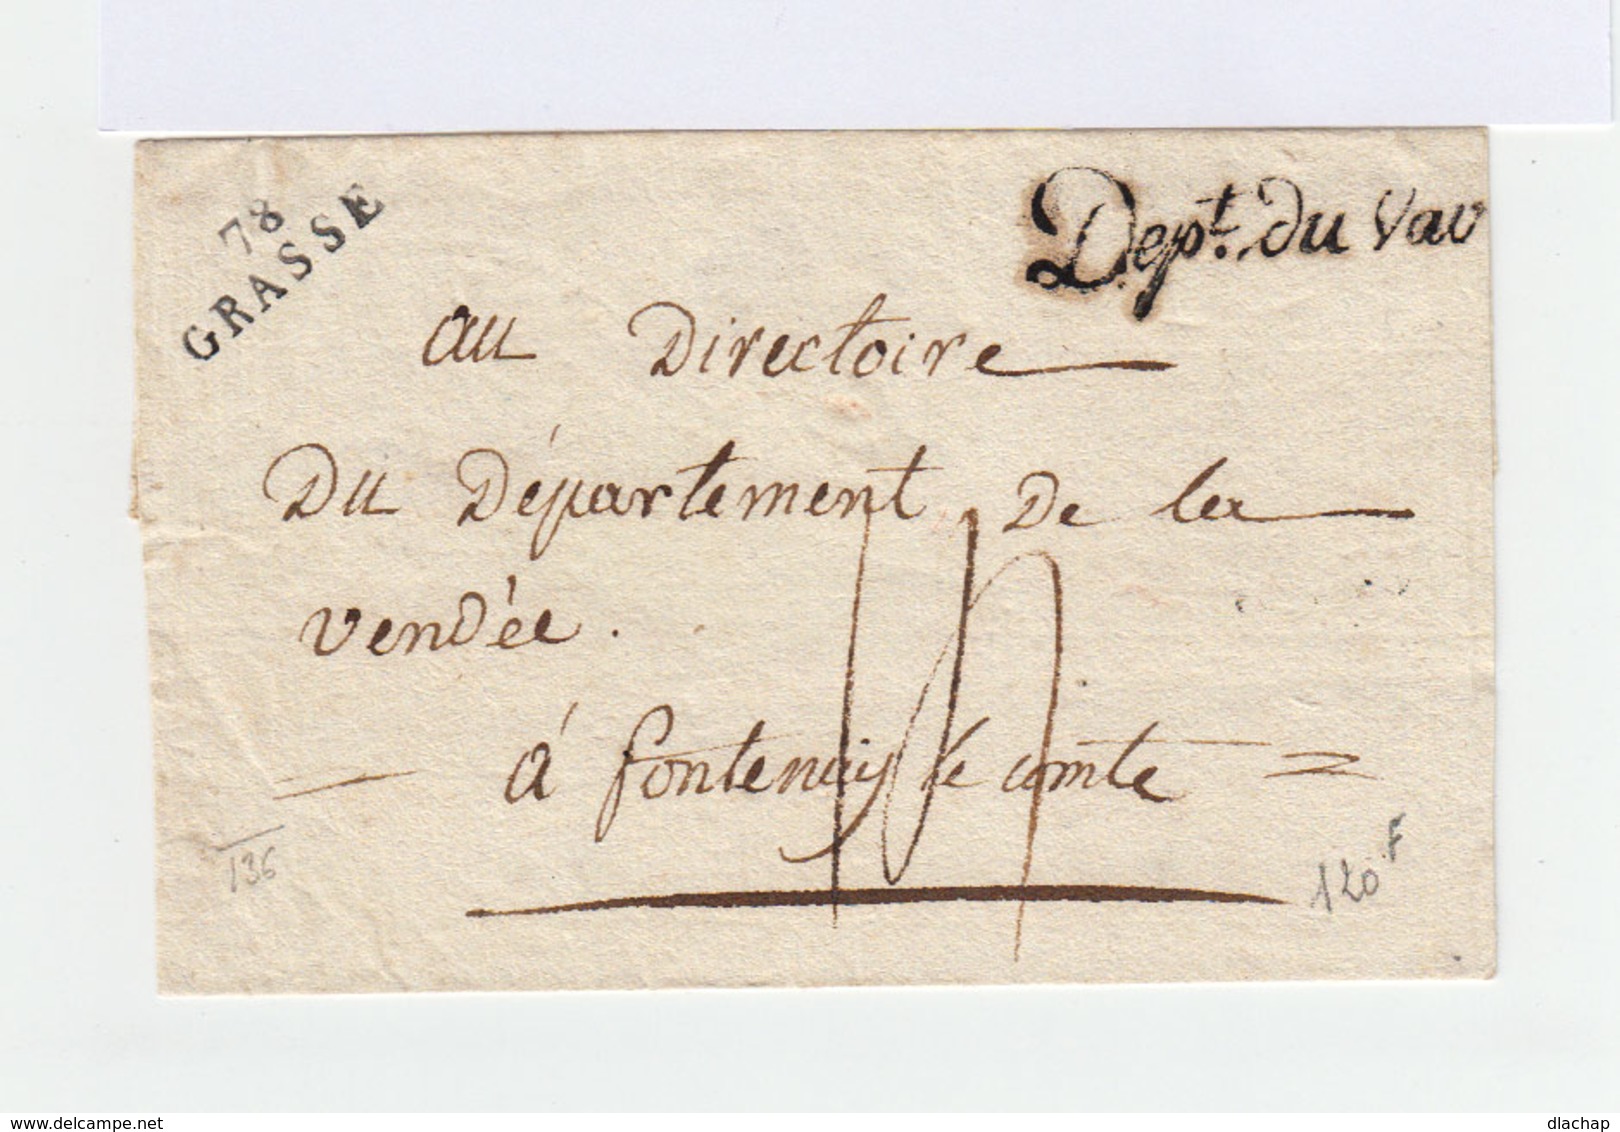 78
GRASSE
Dept. du Var
au Directoire
Du Département De la
vendée.
à fontenay le comte =
136
120 F
dlachap